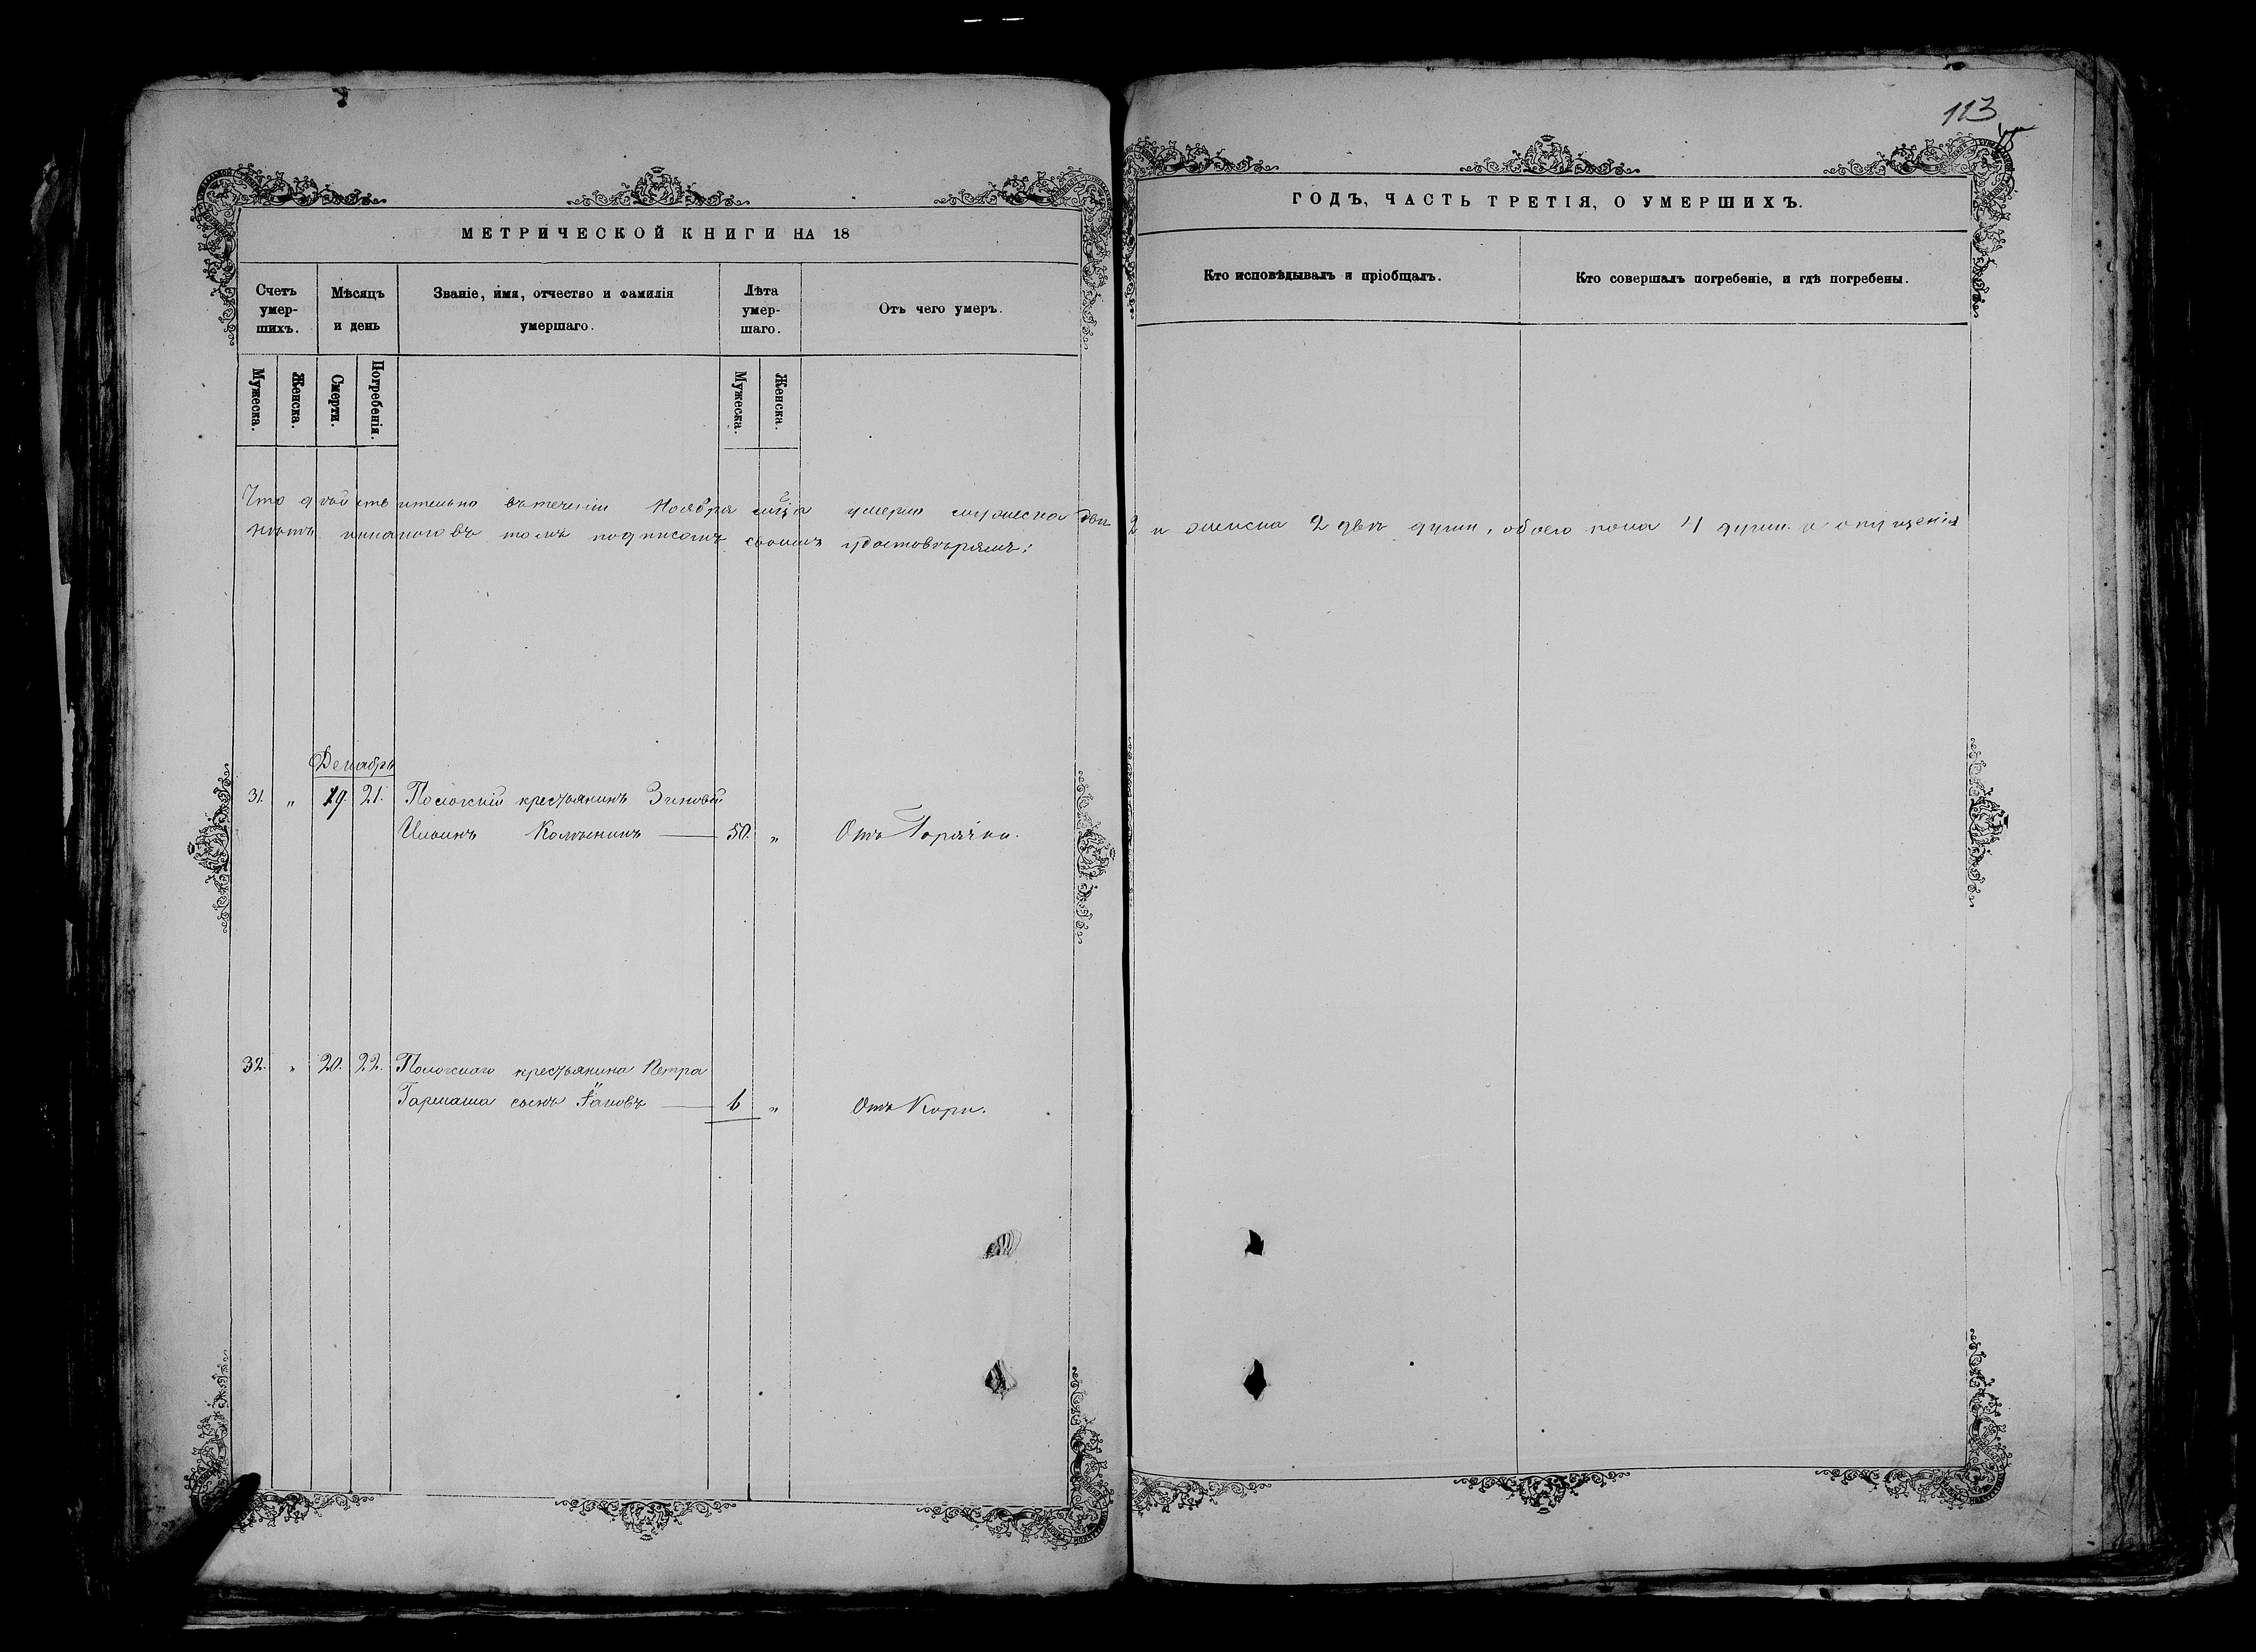 113
МЕТРИЧЕСКОЙ КНИГИ НА 18
ГОДЪ, ЧАСТЬ ТРЕТІЯ, О УМЕРШИХЪ.
Счетъ умер-шихъ.
Мѣсяцъ и день
Званіе, имя, отчество и фамилія умершаго.
Лѣта умер-шаго.
Отъ чего умеръ.
Кто исповѣдывалъ и пріобщалъ.
Кто совершалъ погребеніе, и гдѣ погребены.
Мужеска.
Женска.
Смерти.
Погребенія.
Мужеска.
Женска.
Что действительно въ теченіи Ноября умерло мужеска два 2 и женска 2 двѣ души, обоего пола 4 души и опущенія
нѣтъ никакого въ томъ подписомъ своимъ удостовѣряемъ:
Декабрь
31. " 19. 21. Пологскій крестьянинъ Зиновій
50. " Отъ Горячки.
32. " 20. 22. Пологскаго крестьянина Петра
Гармаша сынъ Іаковъ 6 " Отъ Кори.